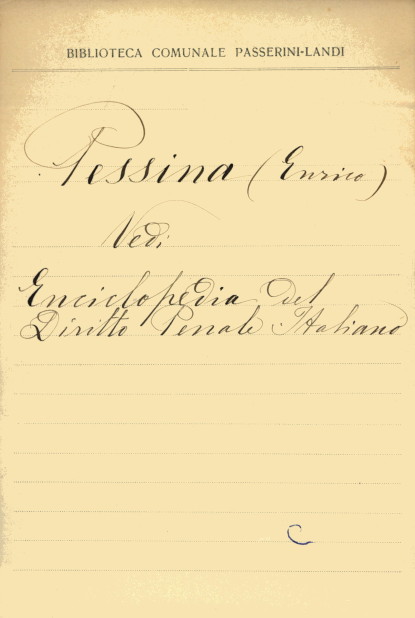 BIBLIOTECA COMUNALE PASSERINI-LANDI
Pessina (Enrico)
Vedi
Enciclopedia del
Diritto Penale Italiano
C